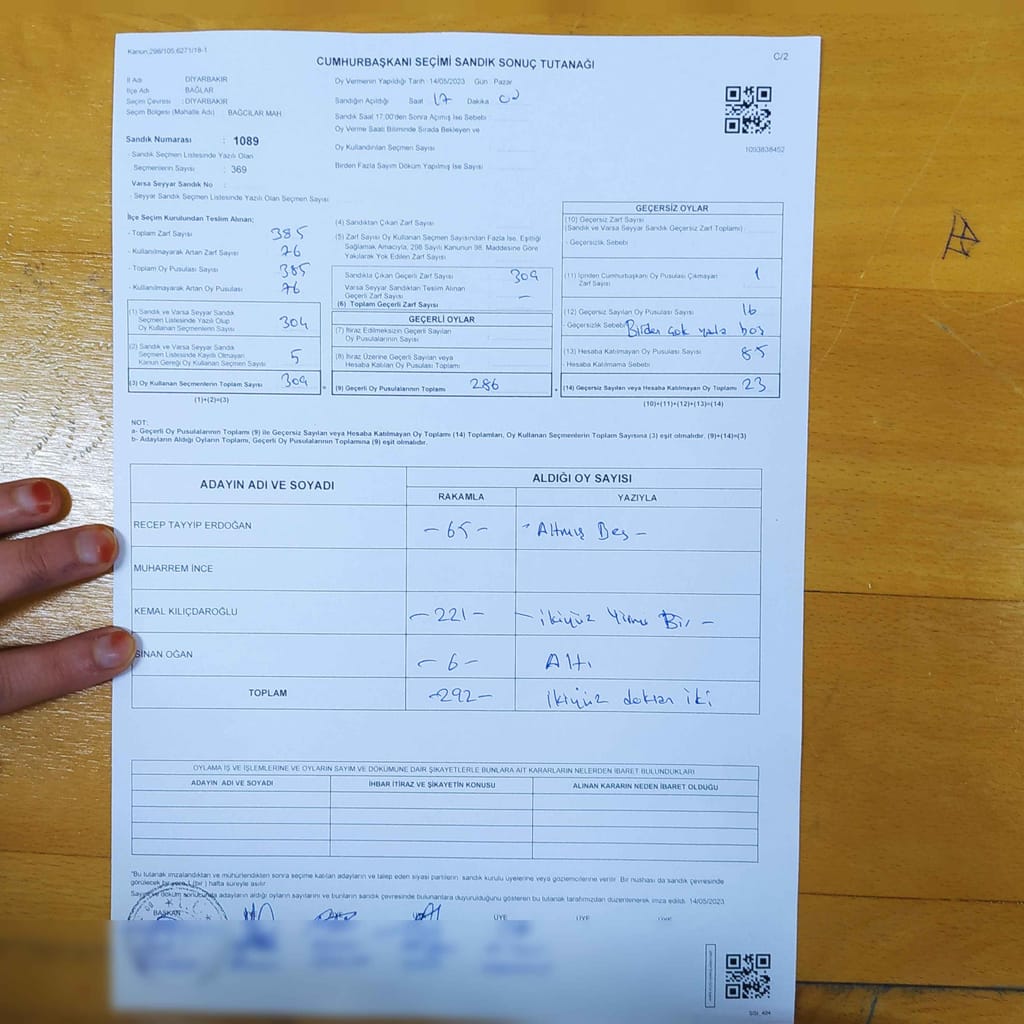 Kanun:298/105,6271/18-1
C/2
CUMHURBAŞKANI SEÇİMİ SANDIK SONUÇ TUTANAĞI
İl Adı : DİYARBAKIR
İlçe Adı : BAĞLAR
Seçim Çevresi : DİYARBAKIR
Seçim Bölgesi (Mahalle Adı) : BAĞCILAR MAH.
Sandık Numarası : 1089
- Sandık Seçmen Listesinde Yazılı Olan
Seçmenlerin Sayısı : 369
Varsa Seyyar Sandık No :
- Seyyar Sandık Seçmen Listesinde Yazılı Olan Seçmen Sayısı
Oy Vermenin Yapıldığı Tarih : 14/05/2023 Gün : Pazar
Sandığın Açıldığı Saat 17 Dakika 00
Sandık Saat 17.00'den Sonra Açımış İse Sebebi
Oy Verme Saati Bitiminde Sırada Bekleyen ve
Oy Kullandırılan Seçmen Sayısı
Birden Fazla Sayım Döküm Yapılmış İse Sayısı
1093838452
İlçe Seçim Kurulundan Teslim Alınan;
- Toplam Zarf Sayısı 385
- Kullanılmayarak Artan Zarf Sayısı 76
- Toplam Oy Pusulası Sayısı 385
- Kullanılmayarak Artan Oy Pusulası 76
(1) Sandık ve Varsa Seyyar Sandık
Seçmen Listesinde Yazılı Olup
Oy Kullanan Seçmenlerin Sayısı 304
(2) Sandık ve Varsa Seyyar Sandık
Seçmen Listesinde Kayıtlı Olmayan
Kanun Gereği Oy Kullanan Seçmen Sayısı 5
(3) Oy Kullanan Seçmenlerin Toplam Sayısı 309
(1)+(2)=(3)
(4) Sandıktan Çıkan Zarf Sayısı
(5) Zarf Sayısı Oy Kullanan Seçmen Sayısından Fazla İse, Eşitliği
Sağlamak Amacıyla, 298 Sayılı Kanunun 98. Maddesine Göre
Yakılarak Yok Edilen Zarf Sayısı
Sandıkta Çıkan Geçerli Zarf Sayısı 309
Varsa Seyyar Sandıktan Teslim Alınan
Geçerli Zarf Sayısı –
(6) Toplam Geçerli Zarf Sayısı
GEÇERLİ OYLAR
(7) İtiraz Edilmeksizin Geçerli Sayılan
Oy Pusulalarının Sayısı
(8) İtiraz Üzerine Geçerli Sayılan veya
Hesaba Katılan Oy Pusulaları Toplamı
(9) Geçerli Oy Pusulalarının Toplamı 286
GEÇERSİZ OYLAR
(10) Geçersiz Zarf Sayısı
(Sandık ve Varsa Seyyar Sandık Geçersiz Zarf Toplamı)
- Geçersizlik Sebebi
(11) İçinden Cumhurbaşkanı Oy Pusulası Çıkmayan
Zarf Sayısı 1
(12) Geçersiz Sayılan Oy Pusulası Sayısı 16
- Geçersizlik Sebebi Birden çok yada boş
(13) Hesaba Katılmayan Oy Pusulası Sayısı
- Hesaba Katılmama Sebebi
(14) Geçersiz Sayılan veya Hesaba Katılmayan Oy Toplamı 23
(10)+(11)+(12)+(13)=(14)
NOT:
a- Geçerli Oy Pusulalarının Toplamı (9) ile Geçersiz Sayılan veya Hesaba Katılmayan Oy Toplamı (14) Toplamları, Oy Kullanan Seçmenlerin Toplam Sayısına (3) eşit olmalıdır. (9)+(14)=(3)
b- Adayların Aldığı Oyların Toplamı, Geçerli Oy Pusulalarının Toplamına (9) eşit olmalıdır.
ADAYIN ADI VE SOYADI
ALDIĞI OY SAYISI
RAKAMLA YAZIYLA
RECEP TAYYİP ERDOĞAN – 65 – - Altmış Beş –
MUHARREM İNCE
KEMAL KILIÇDAROĞLU – 221 – – ikiyüz Yirmi Bir –
SİNAN OĞAN – 6 – Altı
TOPLAM – 292 – ikiyüz doksan iki
OYLAMA İŞ VE İŞLEMLERİNE VE OYLARIN SAYIM VE DÖKÜMÜNE DAİR ŞİKAYETLERLE BUNLARA AİT KARARLARIN NELERDEN İBARET BULUNDUKLARI
ADAYIN ADI VE SOYADI İHBAR İTİRAZ VE ŞİKAYETİN KONUSU ALINAN KARARIN NEDEN İBARET OLDUĞU
"Bu tutanak imzalandıktan ve mühürlendikten sonra seçime katılan adayların ve talep eden siyasi partilerin sandık kurulu üyelerine veya gözlemcilerine verilir. Bir nüshası da sandık çevresinde
görülecek bir yere 1 (bir) hafta süreyle asılır.
Sayım ve döküm sonucunda adayların aldığı oyların sayılarını ve bunların sandık çevresinde bulunanlara duyurulduğunu gösteren bu tutanak tarafımızdan düzenlenerek imza edildi. 14/05/2023
BAŞKAN ÜYE ÜYE ÜYE